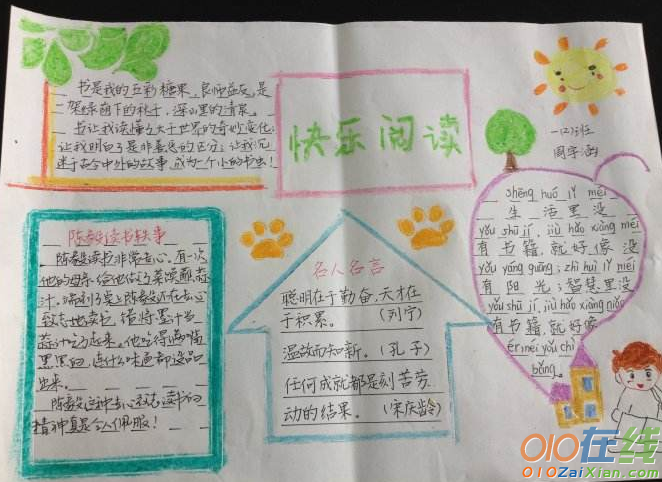 书是我的五彩糖果、良师益友,是
架绿荫下的秋千,深山里的清泉。
书让我读懂了大千世界的奇妙变化;
让我明白了是非善恶的区分;让我沉
迷于古今中外的故事,成为一个小的书虫!
快乐阅读
一(2)班
周宇涵
陈毅读书轶事
陈毅读书非常专心,有一次,
他的母亲给他做了菜馍蘸蒜
汁。端到桌上陈毅还在专心
致志地读书,错将墨汁当
蒜汁吃了起来。他吃得满嘴
黑黑的,连什么味道都没品
出来。
陈毅这种专心致志读书的
精神真是令人佩服!
名人名言
聪明在于勤奋,天才在
于积累。(列宁)
温故而知新。(孔子)
任何成就都是刻苦劳
动的结果。(宋庆龄)
shēng huó lǐ méi
生活里没
yǒu shū jí, jiù hǎo xiàng méi
有书籍,就好像没
yǒu yáng guāng; zhì huì lǐ méi
有阳光;智慧里没
yǒu shū jí, jiù hǎo xiàng niǎo
有书籍,就好像
ér méi yǒu chì
bǎng。
010在线
010ZaiXian.com